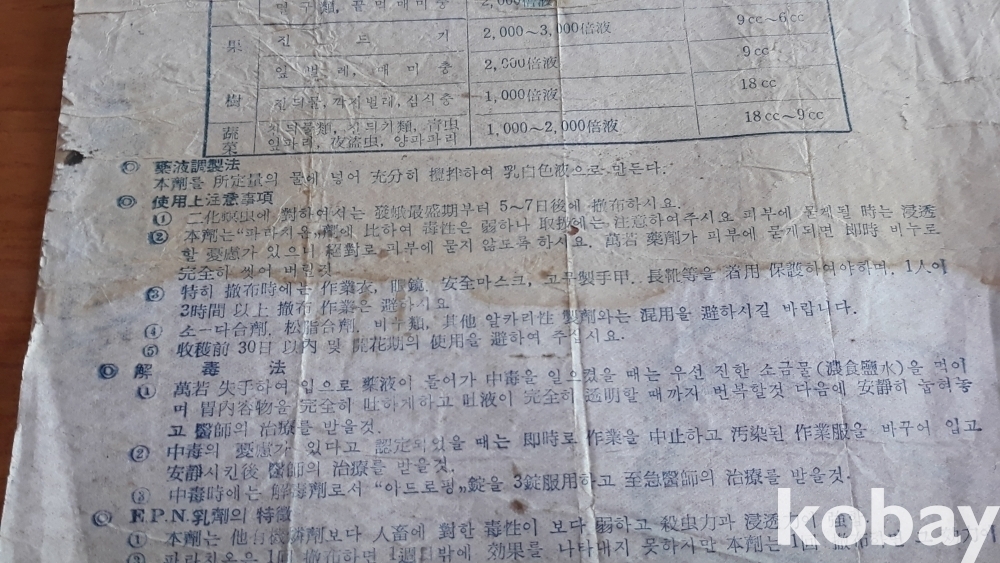 면구類, 끝먹매미충 2,000倍液
果 진드기 2,000~3,000倍液 9cc~6cc
잎벌레, 매미충 2,000倍液 9cc
樹 진듸물, 깍지벌레, 심식충 1,000倍液 18cc
蔬 진듸물類, 진듸기類, 靑虫 1,000~2,000倍液 18cc~9cc
菜 잎파리, 夜盜虫, 양파파리
◎ 藥液調製法
本劑를 所定量의 물에 넣어 充分히 攪拌하여 乳白色液으로 만든다.
◎ 使用上注意事項
① 二化螟虫에 對하여서는 發蛾最盛期부터 5~7日後에 撒布하시요.
② 本劑는 "파라치온"劑에 比하여 毒性은 弱하나 取扱에는 注意하여주시요 피부에 묻체될 時는 浸透
할 憂慮가 있으니 絕對로 피부에 묻지 않도록 하시요. 萬若 藥劑가 피부에 묻게되면 即時 비누로
完全히 씻어 버릴것.
③ 特히 撒布時에는 作業衣, 眼鏡, 安全마스크, 고무製手甲, 長靴等을 着用 保護하여야하며, 1人이
3時間 以上 撒布 作業은 避하시요
④ 소-다合劑, 松脂合劑, 비누類, 其他 알카리性 製劑와는 混用을 避하시길 바랍니다.
⑤ 收穫前 30日 以內 및 開花期의 使用을 避하여 주십시요.
◎ 解毒法
① 萬若 失手하여 입으로 藥液이 들어가 中毒을 일으켰을 때는 우선 진한 소금물(濃食鹽水)을 먹이
며 胃內容物을 完全히 吐하게하고 吐液이 完全히 透明할 때까지 번복할것 다음에 安靜히 눕혀놓
고 醫師의 治療를 받을것.
② 中毒의 憂慮가 있다고 認定되었을 때는 即時로 作業을 中止하고 汚染된 作業服을 바꾸어 입고
安靜시킨後 醫師의 治療를 받을것.
③ 中毒時에는 解毒劑로서 "아드로핑"錠을 3錠服用하고 至急醫師의 治療를 받을것.
◎ E.P.N.乳劑의 特徵
① 本劑는 他有機燐劑보다 人畜에 對한 毒性이 보다 弱하고 殺虫力과 浸透
② 파라치온은 1回 撒布하면 1週日밖에 効果를 나타내지 못하지만 本劑는 1回
kobay